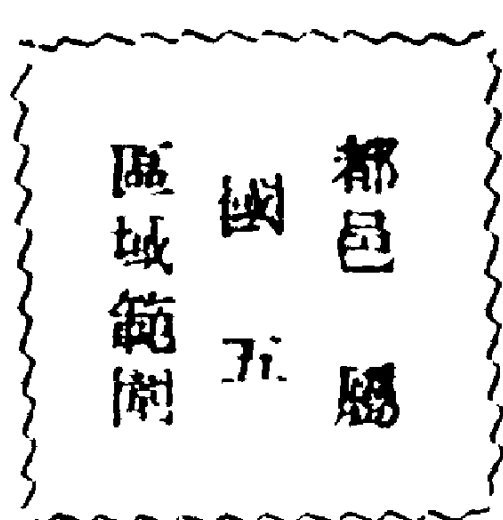 都邑
國 五
區域範圍